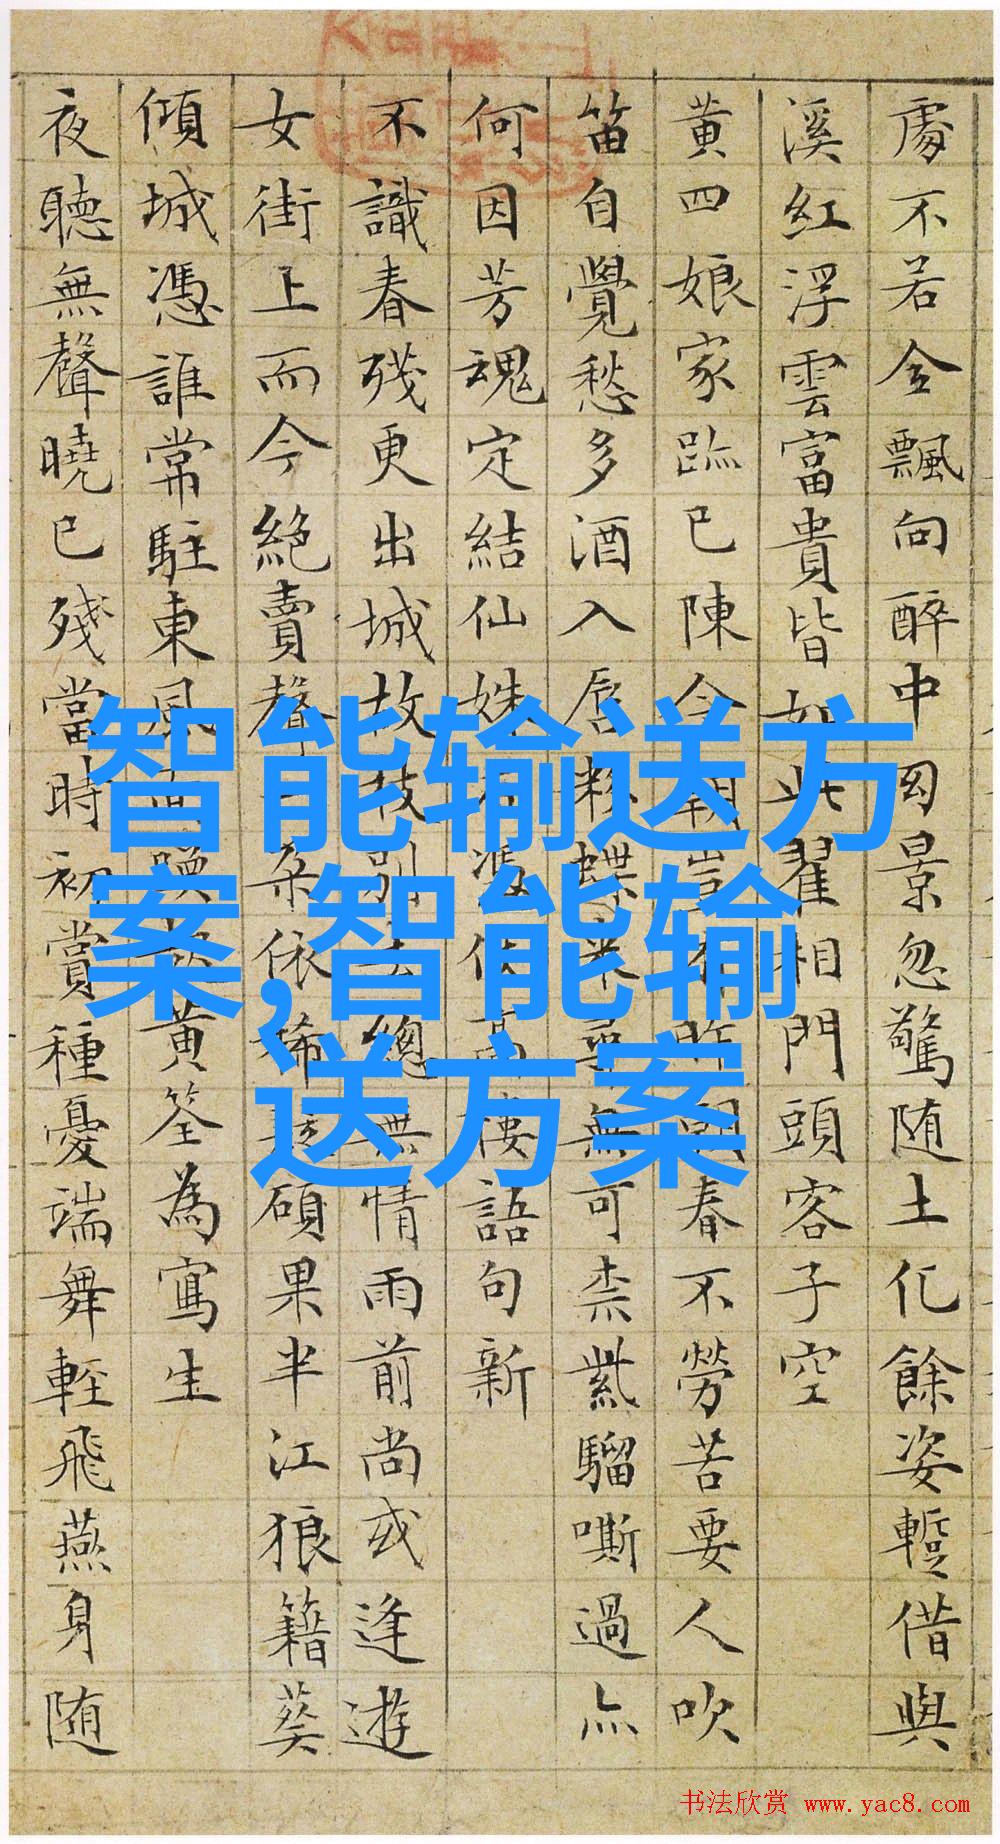 處不若金飄向醉中園景忽驚随土化餘姿蹔借與
溪紅浮雲富貴皆如此翟相門頭客子空
黄四娘家跡已陳今朝豈有昨朝春不勞苦要人吹
笛自覺愁多酒入唇粉蝶來尋無可柰紫騮嘶過亦
何因芳魂定結仙姝
樓語句新
不識春殘更出城故枝別去總無情雨前尚或逢遊
女街上而今絶賣聲一朵依稀
碩果半江狼籍葵
傾城憑誰常駐東風
黄筌為寫生
夜聽無聲曉已殘當時初賞種憂端舞輊飛燕身随
智能输送方
案,智能输
送方案
书法欣赏 www.yac8.com